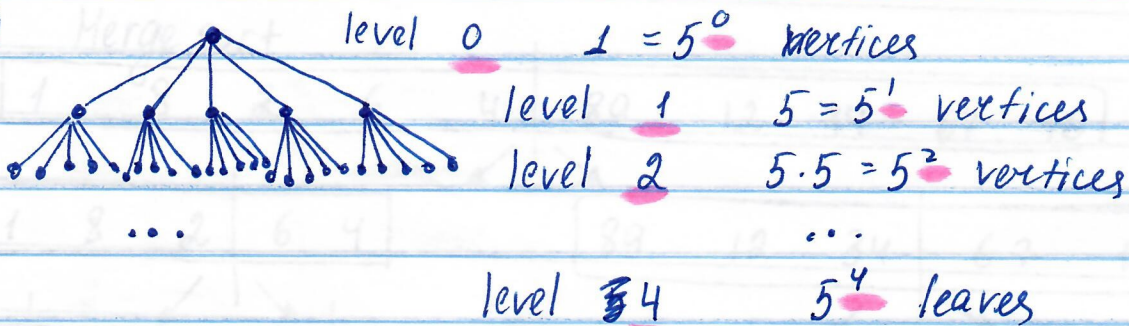 level 0 1 = 5⁰ vertices
level 1 5 = 5¹ vertices
level 2 5·5 = 5² vertices
... ...
level 4 5⁴ leaves